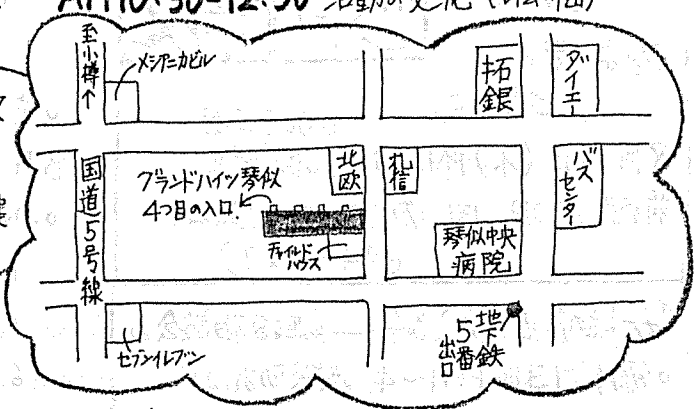 AM10:30-12:30
至小樽↑
メシアニカビル
拓銀
ダイエー
国道5号線
グランドハイツ琴似
4つ目の入口
北欧
札信
バスセンター
チャイルド
ハウス
琴似中央
病院
セブンイレブン
地下鉄
5番
出口